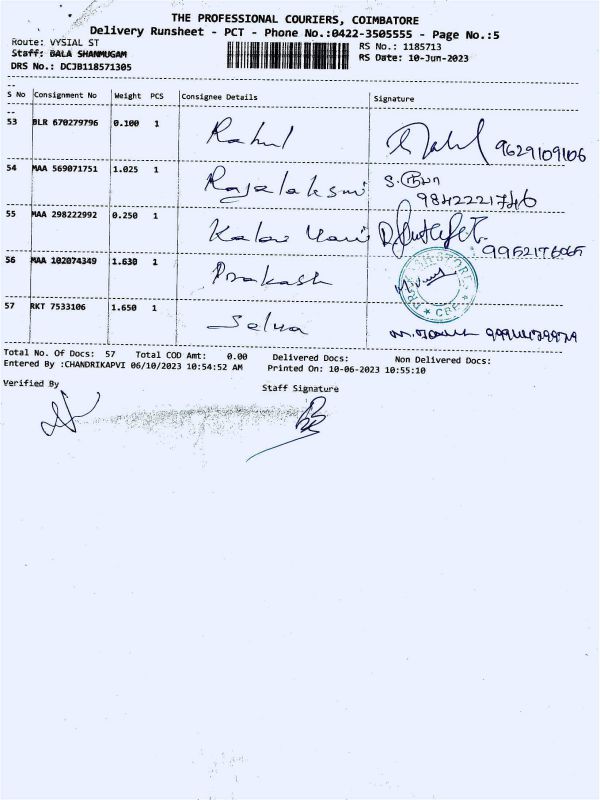 THE PROFESSIONAL COURIERS, COIMBATORE
Delivery Runsheet - PCT - Phone No.:0422-3505555 - Page No.:5
Route: VYSIAL ST RS No.: 1185713
Staff: BALA SHANMUGAM RS Date: 10-Jun-2023
DRS No.: DCJB118571305
S No Consignment No Weight PCS Consignee Details Signature
53 BLR 670279796 0.100 1 Rahul 9629109106
54 MAA 569071751 1.025 1 Rajalaksmi 9842221746
55 MAA 298222992 0.250 1 9952176065
56 MAA 102074349 1.630 1 Prakash
57 RKT 7533106 1.650 1 Selva
Total No. Of Docs: 57 Total COD Amt: 0.00 Delivered Docs: Non Delivered Docs:
Entered By :CHANDRIKAPVI 06/10/2023 10:54:52 AM Printed On: 10-06-2023 10:55:10
Verified By Staff Signature